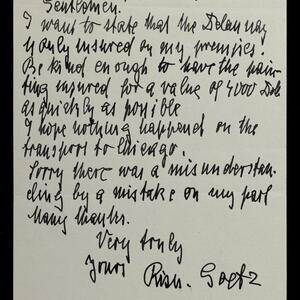 Gentlemen!
I want to state that the Delaunay
is only insured on my premises!
Be kind enough to have the pain-
ting insured for a value of 4000 Doll
as quickly as possible
I hope nothing happened on the
transport to Chicago.
Sorry there was a misunderstan-
ding by a mistake on my part
Many thanks.
Very truly
Yours Rich. Goetz